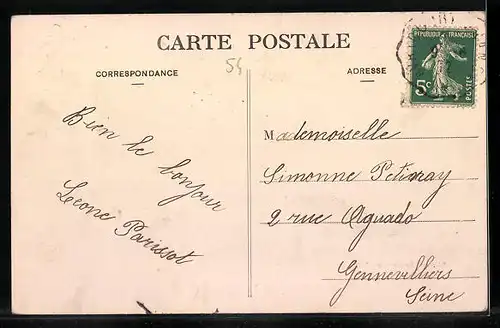 CARTE POSTALE
54
CORRESPONDANCE
ADRESSE
RÉPUBLIQUE FRANÇAISE
5c
POSTES
Bien le bonjour
Leone Parissot
Mademoiselle
Simonne Petimay
2 rue Aguado
Gennevilliers
Seine